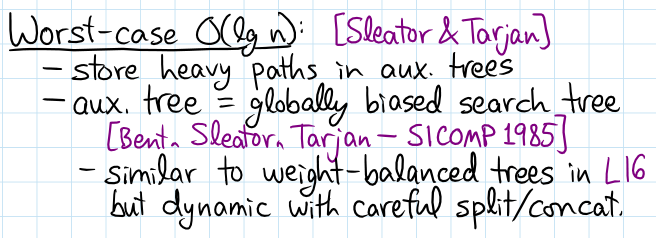 Worst-case O(lg n): [Sleator & Tarjan]
- store heavy paths in aux. trees
- aux. tree = globally biased search tree
[Bent, Sleator, Tarjan - SICOMP 1985]
- similar to weight-balanced trees in L16
but dynamic with careful split/concat.